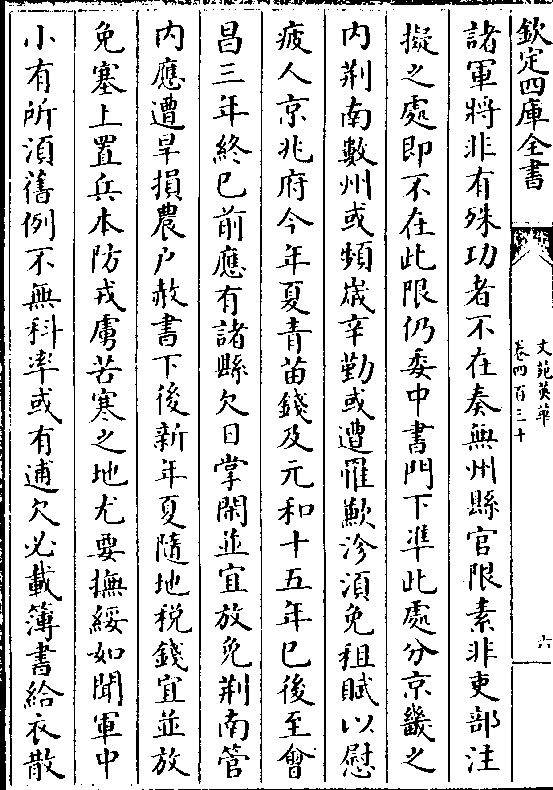 欽定四庫全書
文苑英華
卷四百三十
六
諸軍將非有殊功者不在奏無州縣官限素非吏部注
擬之處即不在此限仍委中書門下準此處分京畿之
内荆南數州或頻嵗辛勤或遭罹歉沴須免租賦以慰
疲人京兆府今年夏青苗錢及元和十五年已後至㑹
昌三年終已前應有諸縣欠日掌閑並宜放免荆南管
内應遭旱損農户赦書下後新年夏隨地税錢宜並放
免塞上置兵本防戎虜苦寒之地尤要撫綏如聞軍中
小有所須舊例不無科率或有逋欠必載簿書給衣散